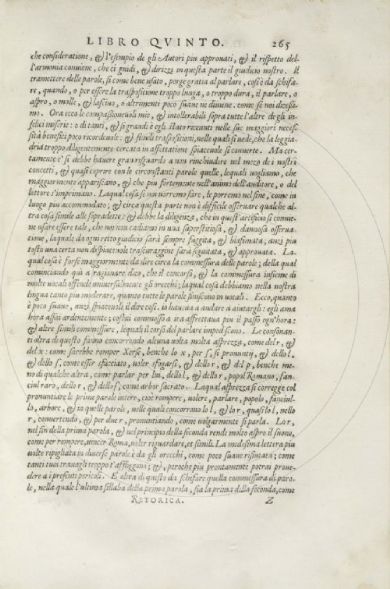 LIBRO QVINTO. 265
che consideratione, & l'essempio de gli Autori piu approuati, & il rispetto del-
l'armonia conuiene, che ci guidi, & dirizzi in questa parte il giudicio nostro. Il
tramettere delle parole, si come bene usato, porge gratia al parlare, cosi è da schifa-
re, quando, o per essere la traspositione troppo lunga, o troppo dura, il parlare, o
aspro, o molle, & lasciuo, o altrimenti poco suaue ne diuiene. come se noi dicessi-
mo. Ora ecco le compassioneuoli mie, & intollerabili sopra tutte l'altre de gli in-
felici miserie: o di tanti, & si grandi e egli stato riceuuti nelle sue maggiori neces-
sità benefici poco ricordeuole: & simili traspositioni, nelle quali si uede, che la leggia-
dria troppo diligentemente cercata in affettatione spiaceuole si conuerte. Ma cer-
tamente e' si debbe hauere gran risguardo a non rinchiudere nel mezo de i nostri
concetti, & quasi coprire con le circonstanti parole quelle, lequali uogliamo, che
maggiormente appariscano, & che piu fortemente nell'animo dell'auditore, o del
lettore s'imprimano. Laqual cosa se noi uorremo fare, le porremo nel fine, come in
luogo piu accommodato; & circa questa parte non è difficile osseruare qualche al-
tra cosa simile alle sopradette: & debbe la diligenza, che in quest'artificio si conuie-
ne usare essere tale, che noi non cadiamo in una superstitiosa, & dannosa osserua-
tione, laquale da ogni retto giudicio sarà sempre fuggita, & biasimata, anzi piu
tosto una certa non dispiaceuole trascuraggine sarà seguitata, & approuata. La
qual cosa è forse maggiormente da dire circa la commessura delle parole; della qual
cominciando qui a ragionare dico, che il concorso, & la commessura insieme di
molte uocali offende uniuersalmente gli orecchi; la qual cosa debbiamo nella nostra
lingua tanto piu moderare, quanto tutte le parole finiscono in uocali. Ecco, quanto
è poco suaue, anzi spiaceuole il dire cosi. io haueua a andare a aiutargli: egli ama
hora assai ardentemente; costui commosso a ira affrettaua piu il passo ogn'hora:
& altre simili commessure, lequali il corso del parlare impediscono. Le consonan-
ti oltra di questo fanno concorrendo alcuna uolta molta asprezza, come del r, &
del x: come sarebbe romper Xerse, benche lo x, per s, si pronuntij, & dello l,
& dello s, come esser sfacciato, uoler sfogarsi, & dello r, & del p, benche me-
no di qualche altra, come parlar per lui, dello l, & dello r, popol Romano, fan-
ciul raro, dello r, & dello s, come arbor sacrato. Laqual asprezza si corregge col
pronuntiare le prime parole intere, cioè rompere, uolere, parlare, popolo, fanciul-
lo, arbore, & in quelle parole, nelle quali concorrono lo l, & lo r, quasi lo l, nello
r, conuertendo, & per due r, pronuntiando, come uolgarmente si parla. Lo r,
nel fin della prima parola, & nel principio della seconda rende molto aspro il suono,
come per rompere, uincer Roma, uoler riguardare, et simili. La medesima lettera piu
uolte ripigliata in diuerse parole è da gli orecchi, come poco suaue rifiutata; come
tanti tuoi trauagli troppo t'affliggono; &, perche piu prontamente potrai proue-
dere a i presenti pericoli. E oltra di questo da schifare quella commessura di paro-
le, nella quale l'ultima sillaba della prima parola, sia la prima della seconda, come
RETORICA. Z